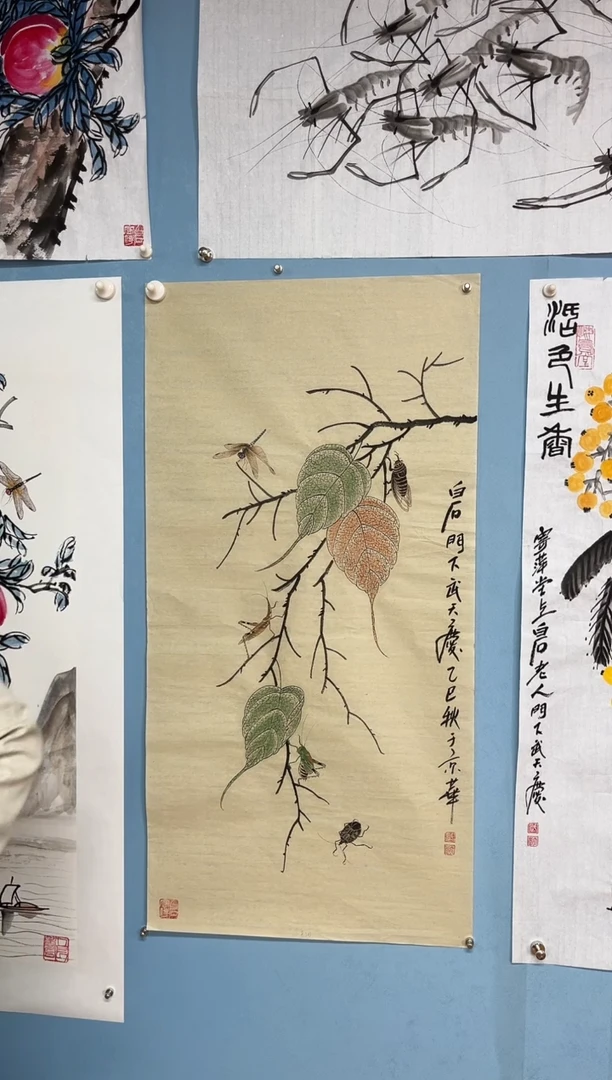 白石門下武天慶乙巳秋于京華
活色生香
寄萍堂上白石老人門下武天慶